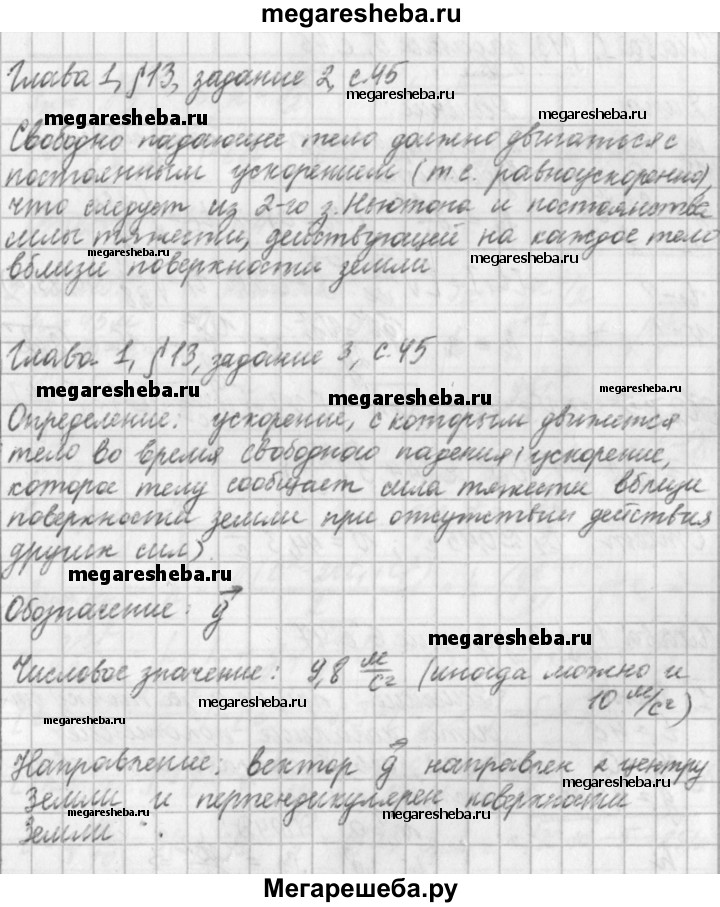 megaresheba.ru
Глава 1, §13, задание 2, с.45
megaresheba.ru
megaresheba.ru
megaresheba.ru
Свободно падающее тело должно двигаться с
постоянным ускорением (т.е. равноускоренно),
что следует из 2-го з. Ньютона и постоянства
силы тяжести, действующей на каждое тело
megaresheba.ru
megaresheba.ru
вблизи поверхности земли
Глава 1, §13, задание 3, с.45
megaresheba.ru
megaresheba.ru
megaresheba.ru
Определение: ускорение, с которым движется
тело во время свободного падения (ускорение,
которое телу сообщает сила тяжести вблизи
поверхности земли при отсутствии действия
других сил).
megaresheba.ru
Обозначение: g⃗
megaresheba.ru
Числовое значение: 9,8 м/с² (иногда можно и
megaresheba.ru
10 м/с²)
megaresheba.ru
Направление: вектор g⃗ направлен к центру
megaresheba.ru
Земли и перпендикулярен поверхности
megaresheba.ru
megaresheba.ru
Земли.
Мегарешеба.ру